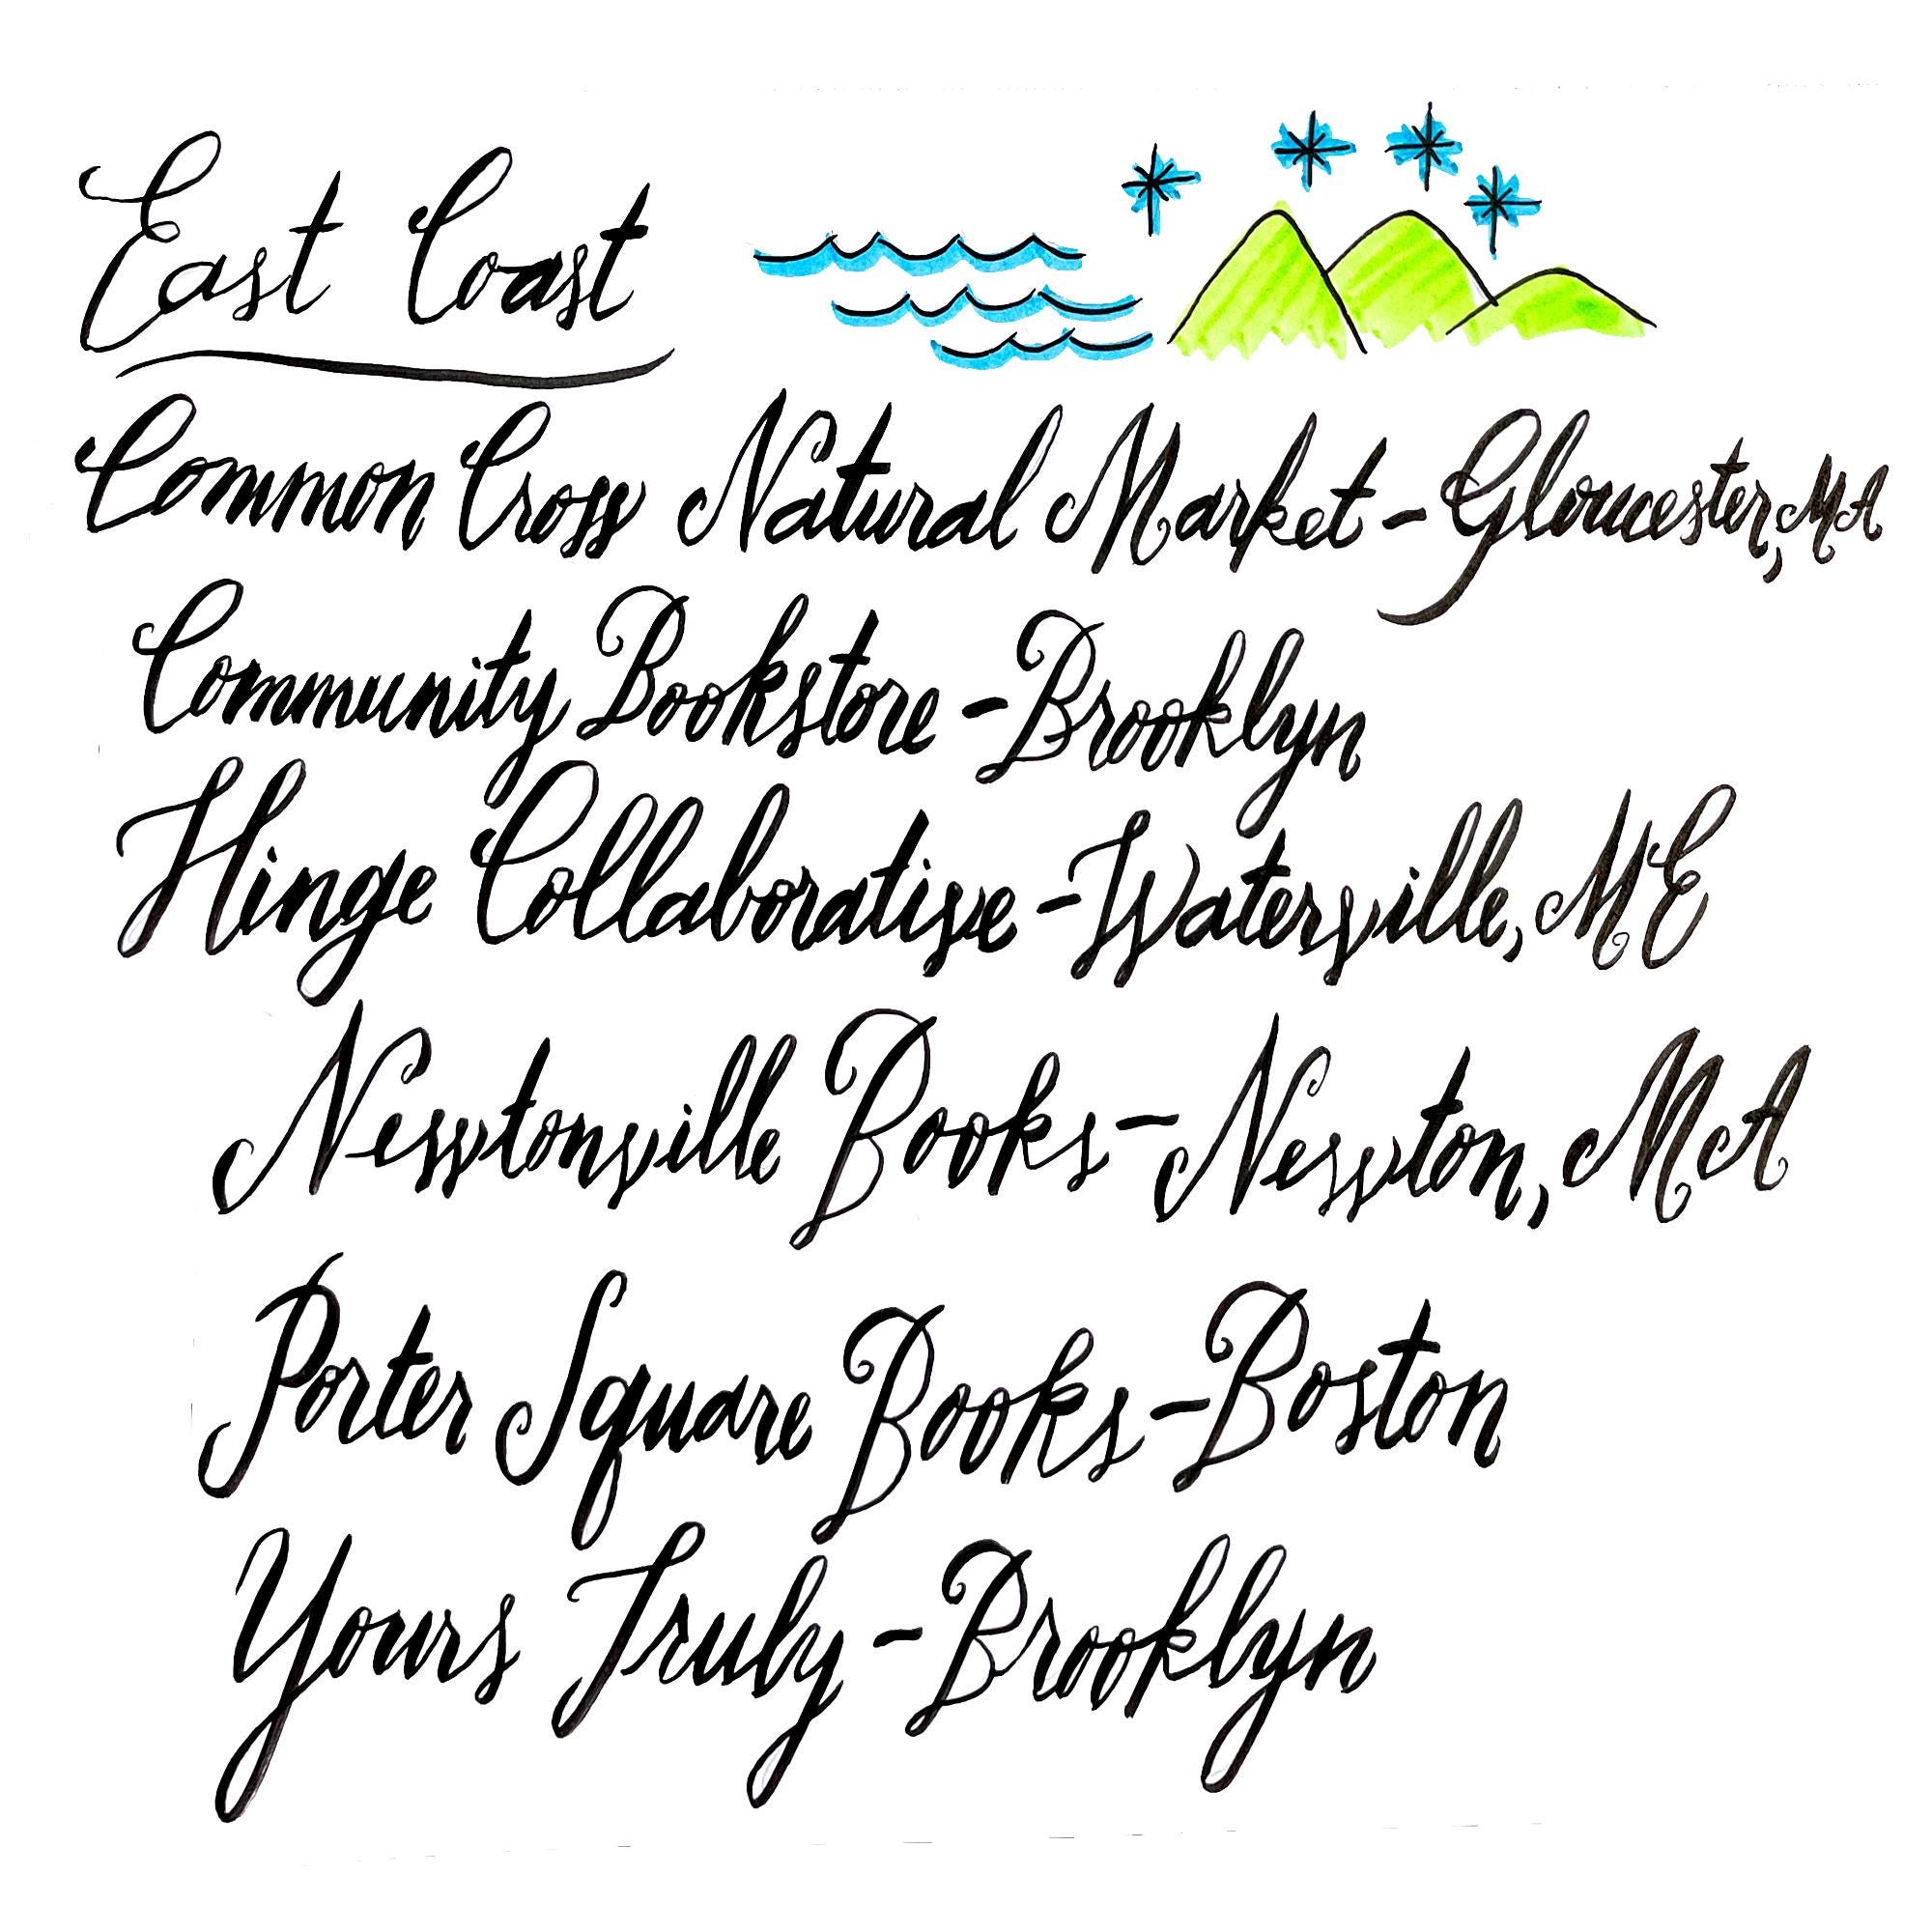 East Coast
Common Cross Natural Market - Gloucester, MA
Community Bookstore - Brooklyn
Hinge Collaborative - Waterville, ME
Newtonville Books - Newton, MA
Porter Square Books - Boston
Yours Truly - Brooklyn